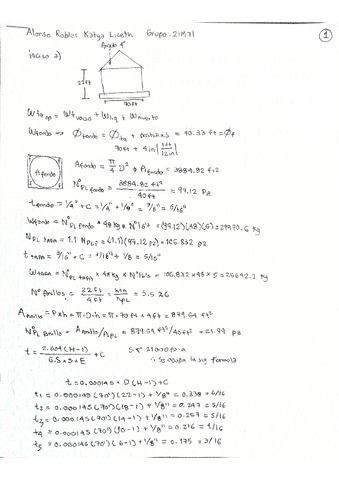 Alonso Robles Katya Liceth Grupo: 21M71
1
inciso a)
Angulo 9°
22ft
70ft
Wt op = Wt vacio + W liq + W muerto
W fondo => Ø fondo = Ø tq + pestañas = 70.33 ft = Øf
70ft + 4in |1ft/12in|
A fondo
A fondo = π/4 D² ∴ A fondo = 3884.82 ft2
N°PL fondo = 3884.82 ft²/40ft² = 97.12 pz
t fondo = 1/4" + C = 1/4" + 1/8" = 3/8" = 5/16"
W fondo = N°PL fondo * 48 kg * N°16's = (97.12)(48)(5) = Kg
N°PL tapa = 1.1 N°PLf = (1.1)(97.12 pz) = 106.832 pz
t tapa = 3/16" + C = 3/16" + 1/8 = 5/16"
W tapa = N°PL tapa * 48 kg * N°16's = 106.832 * 48 * 5 = 25642.2 Kg
N° Anillos = 22ft/4ft = htn/hPL = 5.5 ≈ 6
A anillo = P x h = π·D·h = π·70ft * 4ft = 879.64 ft²
N°PL Anillo = A anillo/A PL = 879.64 ft²/40ft² = 21.99 pz
t = 2.604(H-1)/G.S*S*E + C
S = 21000 psia
∴ Se ocupa la sig formula
t = 0.000145 * D (H-1) + C
t1 = 0.000145 (70') (22-1) + 1/8" = 0.338 = 6/16
t2 = 0.000145 (70') (18-1) + 1/8" = 0.297 = 5/16
t3 = 0.000145 (70') (14-1) + 1/8" = 0.257 = 5/16
t4 = 0.000145 (70') (10-1) + 1/8" = 0.216 = 4/16
t5 = 0.000145 (70') (6-1) + 1/8" = 0.175 = 3/16